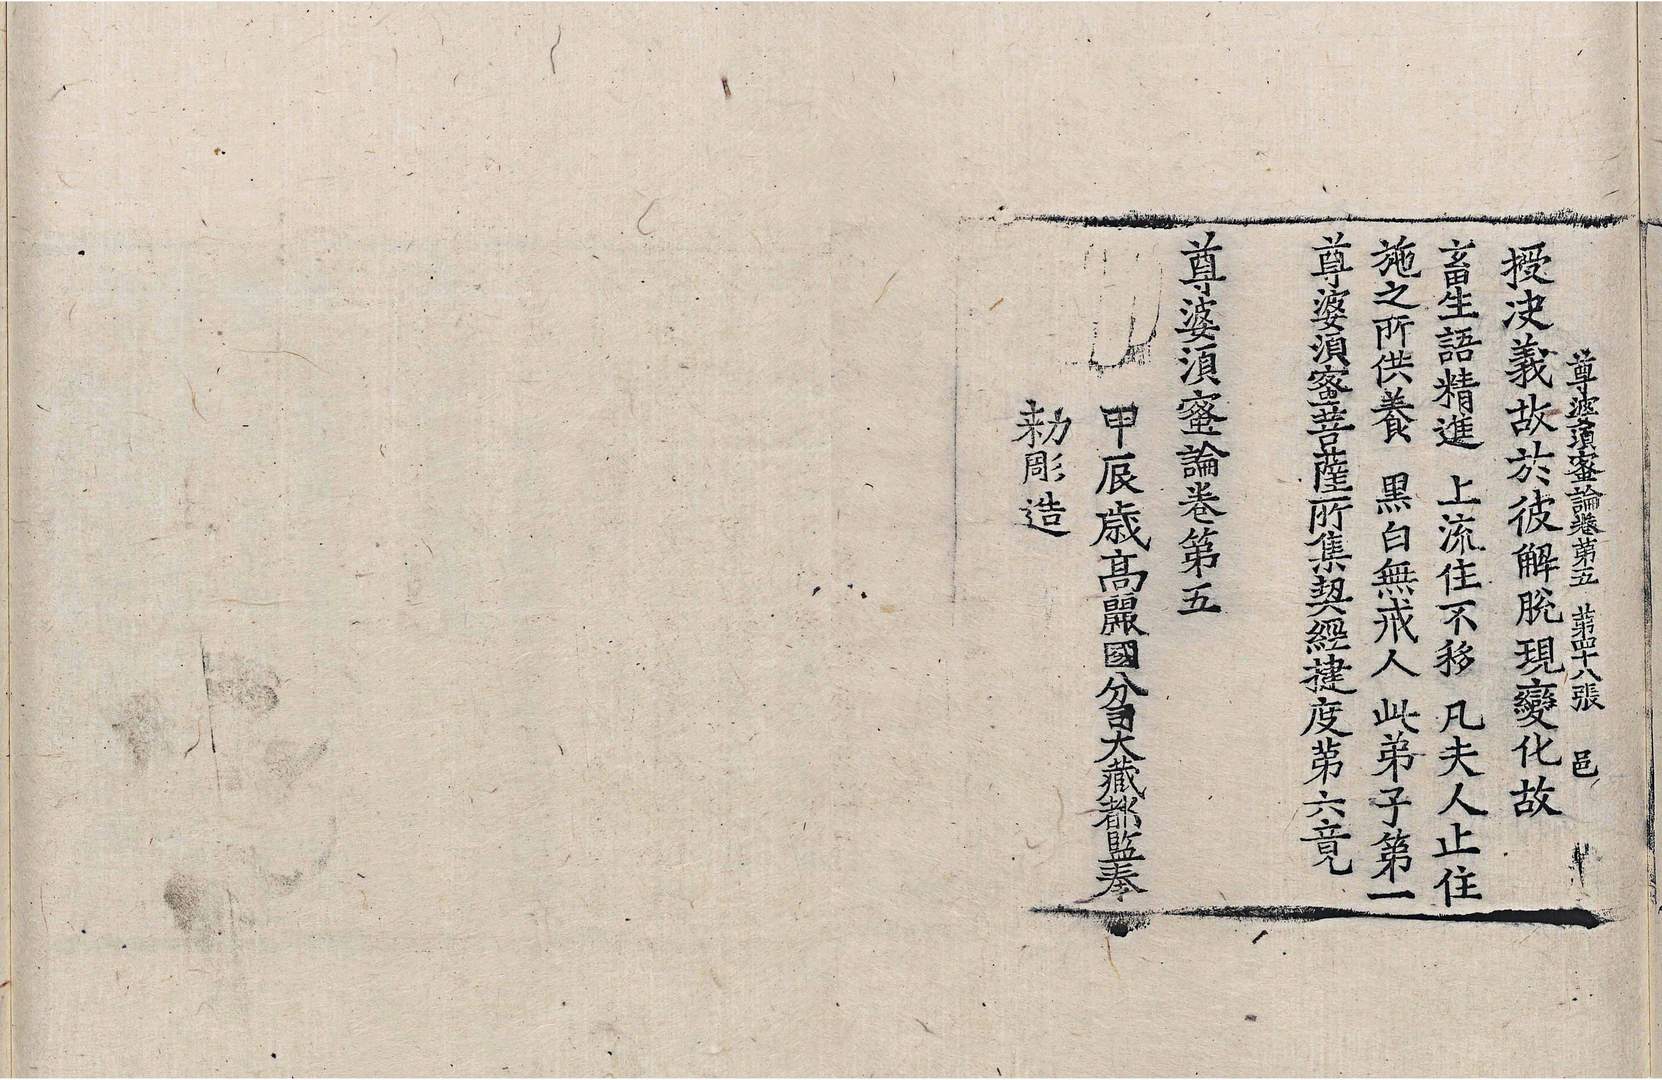 尊婆須蜜論卷第五 第四十八張 邑
授決義故於彼解脫現變化故
畜生語精進 上流住不移 凡夫人止住
施之所供養 黑白無戒人 此弟子第一
尊婆須蜜菩薩所集契經揵度第六竟
尊婆須蜜論卷第五
甲辰歲高麗國分司大藏都監奉
勅彫造